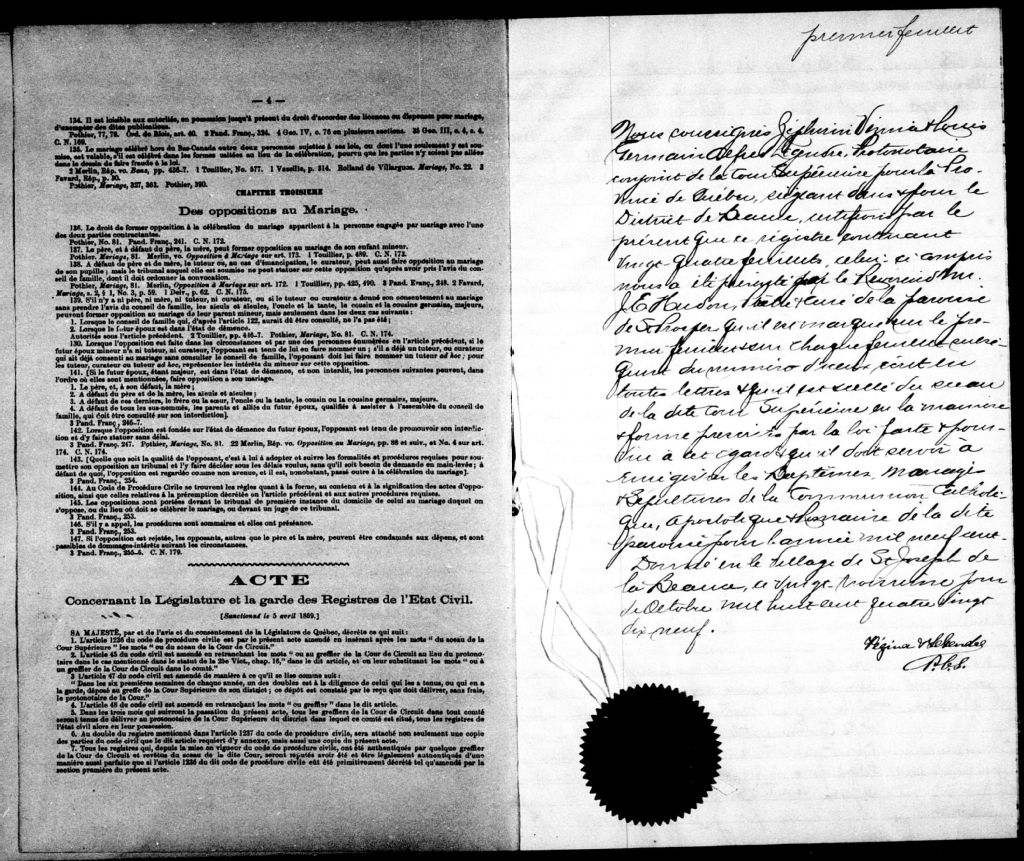 — 4 —
134. Il est loisible aux autorités, en possession jusqu'à présent du droit d'accorder des licences ou dispenses pour mariage,
d'exempter des dites publications.
Pothier, 77, 78. Ord. de Blois, art. 40. 2 Pand. Franç., 334. 4 Geo. IV, c. 76 en plusieurs sections. 35 Geo. III, c. 4, s. 4.
C. N. 169.
135. Le mariage célébré hors du Bas-Canada entre deux personnes sujettes à ses lois, ou dont l'une seulement y est sou-
mise, est valable, s'il est célébré dans les formes usitées au lieu de la célébration, pourvu que les parties n'y soient pas allées
dans le dessein de faire fraude à la loi.
2 Merlin, Rép. vo. Bans, pp. 436-7. 1 Touillier, No. 577. 1 Vazeille, p. 314. Rolland de Villargue. Mariage, No. 22. 3
Favard, Rép., p. 30.
Pothier, Mariage, 327, 363. Pothier, 390.
CHAPITRE TROISIEME
Des oppositions au Mariage.
136. Le droit de former opposition à la célébration du mariage appartient à la personne engagée par mariage avec l'une
des deux parties contractantes.
Pothier, No. 81. Pand. Franç., 241. C. N. 172.
137. Le père, et à défaut du père, la mère, peut former opposition au mariage de son enfant mineur.
Pothier, Mariage, 81. Merlin, vo. Opposition à Mariage sur art. 172. 1 Touillier, p. 489. C. N. 173.
138. A défaut de père et de mère, le tuteur ou, au cas d'émancipation, le curateur, peut aussi faire opposition au mariage
de son pupille; mais le tribunal auquel elle est soumise ne peut statuer sur cette opposition qu'après avoir pris l'avis du con-
seil de famille, dont il doit ordonner la convocation.
Pothier, Mariage, 81. Merlin, Opposition à Mariage sur art. 172. 1 Touillier, pp. 425, 490. 3 Pand. Evanç., 248. 2 Favard,
Mariage, s. 2, § 1, No. 3, p. 59. 1 Delv., p. 62. C. N. 175.
139. S'il n'y a ni père, ni mère, ni tuteur, ni curateur, ou si le tuteur ou curateur a donné son consentement au mariage
sans prendre l'avis du conseil de famille, les aïeuls et aïeules, l'oncle et la tante, le cousin et la cousine germains, majeurs,
peuvent former opposition au mariage de leur parent mineur, mais seulement dans les deux cas suivants :
1. Lorsque le conseil de famille qui, d'après l'article 122, aurait dû être consulté, ne l'a pas été;
2. Lorsque le futur époux est dans l'état de démence.
Autorités sous l'article précédent. 2 Touillier, pp. 416-7. Pothier, Mariage, No. 81. C. N. 174.
130. Lorsque l'opposition est faite dans les circonstances et par une des personnes énumérées en l'article précédent, si le
futur époux mineur n'a ni tuteur, ni curateur, l'opposant est tenu de lui en faire nommer un ; s'il a déjà un tuteur, ou curateur
qui ait déjà consenti au mariage sans consulter le conseil de famille, l'opposant doit lui faire nommer un tuteur ad hoc; pour
les tuteur, curateur ou tuteur ad hoc, représenter les intérêts du mineur sur cette opposition.
141. [Si le futur époux, étant majeur, est dans l'état de démence, et non interdit, les personnes suivantes peuvent, dans
l'ordre où elles sont mentionnées, faire opposition à son mariage.
1. Le père, et, à son défaut, la mère;
2. A défaut du père et de la mère, les aïeuls et aïeules;
3. A défaut de ces derniers, le frère ou la sœur, l'oncle ou la tante, le cousin ou la cousine germains, majeurs.
4. A défaut de tous les sus-nommés, les parents et alliés du futur époux, qualifiés à assister à l'assemblée du conseil de
famille, qui doit être consulté sur son interdiction].
3 Pand. Franç., 246-7.
142. Lorsque l'opposition est fondée sur l'état de démence du futur époux, l'opposant est tenu de promouvoir son interdic-
tion et d'y faire statuer sans délai.
3 Pand. Franç. 247. Pothier, Mariage, No. 81. 22 Merlin, Rép. vo. Opposition au Mariage, pp. 88 et suiv., et No. 4 sur art.
174. C. N. 174.
143. [Quelle que soit la qualité de l'opposant, c'est à lui à adopter et suivre les formalités et procédures requises pour sou-
mettre son opposition au tribunal et l'y faire décider sous les délais voulus, sans qu'il soit besoin de demande en main-levée; à
défaut de quoi, l'opposition est regardée comme non avenue, et il est, nonobstant, passé outre à la célébration du mariage].
3 Pand. Franç., 254.
144. Au Code de Procédure Civile se trouvent les règles quant à la forme, au contenu et à la signification des actes d'oppo-
sition, ainsi que celles relatives à la péremption décrétée en l'article précédent et aux autres procédures requises.
145. Les oppositions sont portées devant le tribunal de première instance du domicile de celui au mariage duquel on
s'oppose, ou du lieu où doit se célébrer le mariage, ou devant un juge de ce tribunal.
3 Pand. Franç., 253.
146. S'il y a appel, les procédures sont sommaires et elles ont préséance.
3 Pand. Franç., 253.
147. Si l'opposition est rejetée, les opposants, autres que le père et la mère, peuvent être condamnés aux dépens, et sont
passibles de dommages-intérêts suivant les circonstances.
3 Pand. Franç., 255-6. C. N. 179.
ACTE
Concernant la Législature et la garde des Registres de l'Etat Civil.
[Sanctionné le 5 avril 1869.]
SA MAJESTÉ, par et de l'avis et du consentement de la Législature de Québec, décrète ce qui suit:
1. L'article 1236 du code de procédure civile est par le présent acte amendé en insérant après les mots " du sceau de la
Cour Supérieure " les mots " ou du sceau de la Cour de Circuit."
2. L'article 45 du code civil est amendé en retranchant les mots " ou au greffier de la Cour de Circuit au lieu du protono-
taire dans le cas mentionné dans le statut de la 25e Vict., chap. 16," dans le dit article, et en leur substituant les mots " ou à
un greffier de la Cour de Circuit dans le comté."
3 L'article 47 du code civil est amendé de manière à ce qu'il se lise comme suit:
" Dans les six premières semaines de chaque année, un des doubles est à la diligence de celui qui les a tenus, ou qui en a
la garde, déposé au greffe de la Cour Supérieure de son district; ce dépôt est constaté par le reçu que doit délivrer, sans frais,
le protonotaire de la Cour."
4. L'article 48 du code civil est amendé en retranchant les mots " ou greffier " dans le dit article.
5. Dans les trois mois qui suivront la passation du présent acte, tous les greffiers de la Cour de Circuit dans tout comté
seront tenus de délivrer au protonotaire de la Cour Supérieure du district dans lequel ce comté est situé, tous les registres de
l'état civil alors en leur possession.
6. Au double du registre mentionné dans l'article 1237 du code de procédure civile, sera attaché non seulement une copie
des parties du code civil que le dit article requiert d'y annexer, mais aussi une copie du présent acte.
7. Tous les registres qui, depuis la mise en vigueur du code de procédure civile, ont été authentiqués par quelque greffier
de la Cour de Circuit et revêtus du sceau de la dite Cour, seront réputés avoir été et être légalement authentiqués d'une
manière aussi parfaite que si l'article 1236 du dit code de procédure civile eût été primitivement décrété tel qu'amendé par la
section première du présent acte.
premier feuillet
Nous soussignés Zéphirin Vézina & Louis
Germain Alfred Legendre, Protonotaire
conjoint de la Cour Supérieure pour la Pro-
vince de Québec, siégeant dans & pour le
District de Beauce, certifions par le
présent que ce registre contenant
vingt quatre feuillets, celui-ci compris
nous a été présenté par le Révérend Mr.
J. E. Hudon, Ptre & curé de la paroisse
de St Prosper qu'il est marqué sur le pre-
mier feuillet & sur chaque feuillet subsé-
quent du numéro d'icelui, écrit en
toutes lettres & qu'il est scellé du sceau
de la dite Cour Supérieure en la manière
& forme prescrites par la loi faite & pour-
vue à cet égard & qu'il doit servir à
enrégistrer les Baptêmes, Mariages
& Sépultures de la Communion Catholi-
que, Apostolique & Romaine de la dite
paroisse pour l'année mil neuf cent.
Donné en le village de St Joseph de
la Beauce, ce vingt-troisième jour
de Octobre mil huit cent quatre vingt
dix neuf.
Vézina & Legendre
P.C.S.